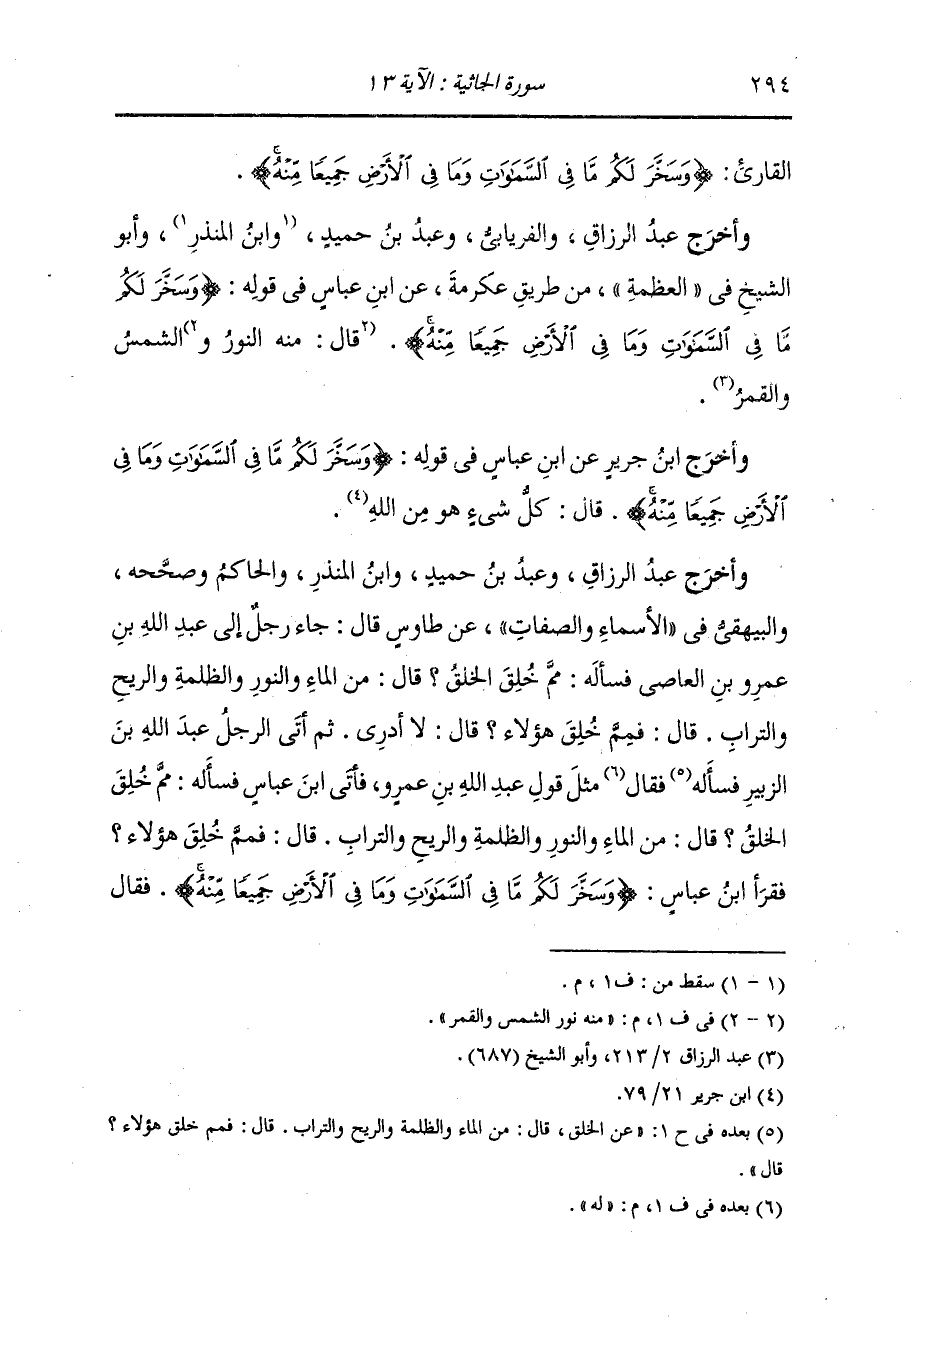 ٢٩٤ سورة الجاثية : الآية ١٣
القارئُ : ﴿وَسَخَّرَ لَكُم مَّا فِى ٱلسَّمَٰوَٰتِ وَمَا فِى ٱلْأَرْضِ جَمِيعًا مِّنْهُۚ﴾ .
وأخرَج عبدُ الرزاقِ ، والفريابيُّ ، وعبدُ بنُ حميدٍ ، (١وابنُ المنذرِ١) ، وأبو
الشيخِ فى « العظمةِ » ، من طريقِ عكرمةَ ، عن ابنِ عباسٍ فى قولِه : ﴿وَسَخَّرَ لَكُم
مَّا فِى ٱلسَّمَٰوَٰتِ وَمَا فِى ٱلْأَرْضِ جَمِيعًا مِّنْهُۚ﴾ . (٢قال : منه النورُ و٢)الشمسُ
والقمرُ(٣) .
وأخرَج ابنُ جريرٍ عن ابنِ عباسٍ فى قولِه : ﴿وَسَخَّرَ لَكُم مَّا فِى ٱلسَّمَٰوَٰتِ وَمَا فِى
ٱلْأَرْضِ جَمِيعًا مِّنْهُۚ﴾ . قال : كلُّ شىءٍ هو مِن اللهِ(٤) .
وأخرَج عبدُ الرزاقِ ، وعبدُ بنُ حميدٍ ، وابنُ المنذرِ ، والحاكمُ وصحَّحه ،
والبيهقىُّ فى «الأسماءِ والصفاتِ» ، عن طاوسٍ قال : جاء رجلٌ إلى عبدِ اللهِ بنِ
عمرِو بنِ العاصى فسألَه : ممَّ خُلِقَ الخلقُ ؟ قال : من الماءِ والنورِ والظلمةِ والريحِ
والترابِ . قال : فمِمَّ خُلِقَ هؤلاء ؟ قال : لا أدرِى . ثم أتَى الرجلُ عبدَ اللهِ بنَ
الزبيرِ فسأَله(٥) فقال(٦) مثلَ قولِ عبدِ اللهِ بنِ عمرٍو، فأتَى ابنَ عباسٍ فسأَله : ممَّ خُلِقَ
الخلقُ ؟ قال : من الماءِ والنورِ والظلمةِ والريحِ والترابِ . قال : فممَّ خُلِقَ هؤلاء ؟
فقرَأ ابنُ عباسٍ : ﴿وَسَخَّرَ لَكُم مَّا فِى ٱلسَّمَٰوَٰتِ وَمَا فِى ٱلْأَرْضِ جَمِيعًا مِّنْهُۚ﴾ . فقال
(١ - ١) سقط من : ف١ ، م .
(٢ - ٢) فى ف ١، م : « منه نور الشمس والقمر» .
(٣) عبد الرزاق ٢/ ٢١٣، وأبو الشيخ (٦٨٧) .
(٤) ابن جرير ٢١/ ٧٩.
(٥) بعده فى ح ١: « عن الخلق ، قال : من الماء والظلمة والريح والتراب . قال : فمم خلق هؤلاء ؟
قال » .
(٦) بعده فى ف ١، م : « له» .